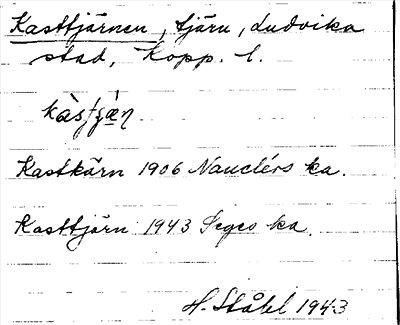 Kasttjärnen, tjärn, Ludvika
stad, Kopp. l.
Kastkärn 1906 Nauclérs ka.
Kasttjärn 1943 Seges ka.
H. Ståhl 1943